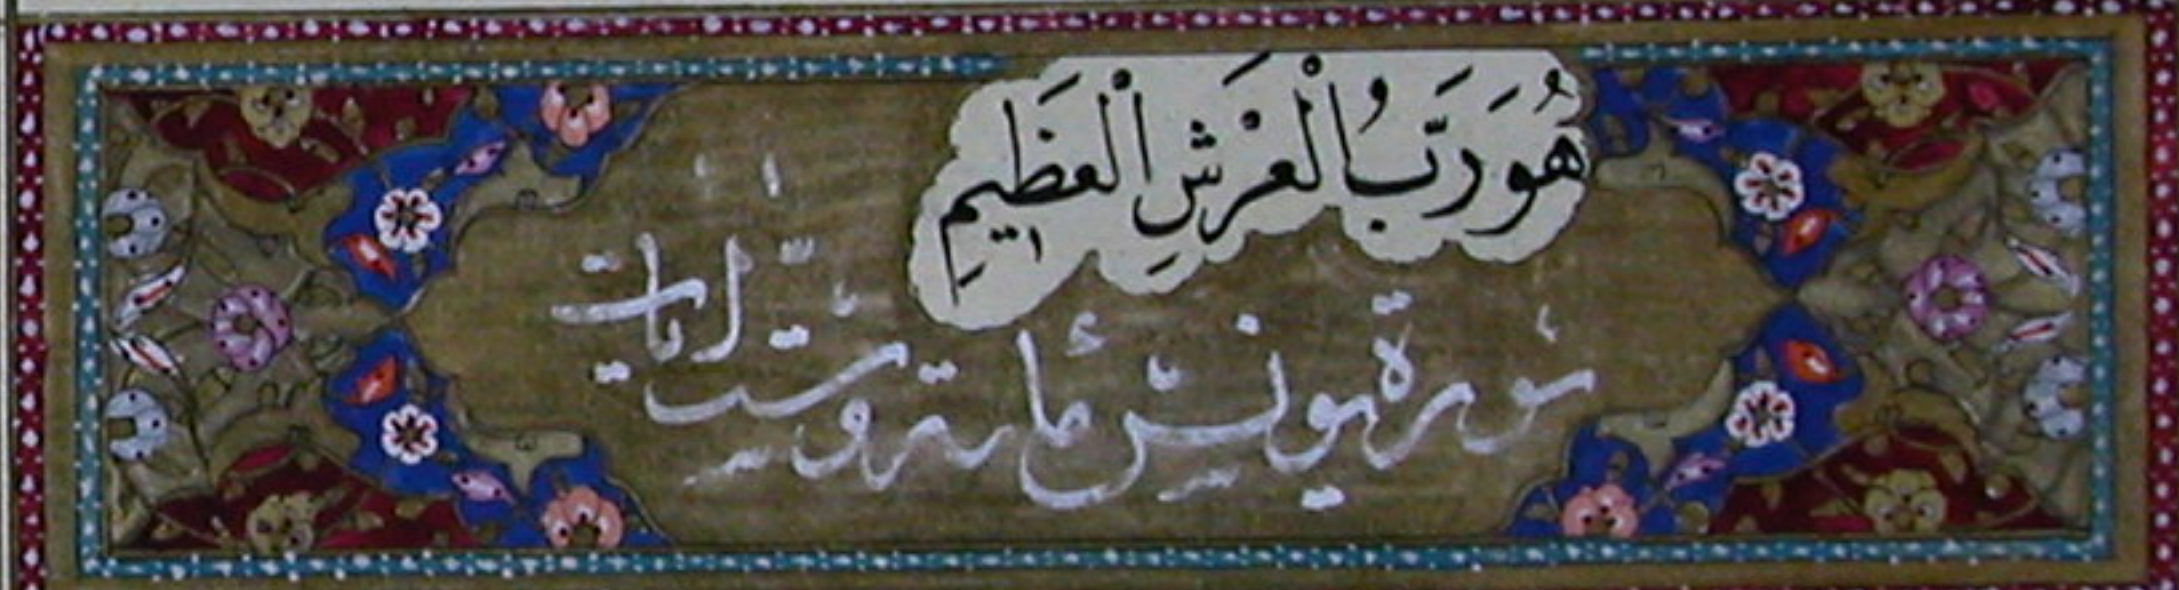 هُوَ رَبُّ الْعَرْشِ الْعَظِيمِ
سورة يونس مائة وست ايات